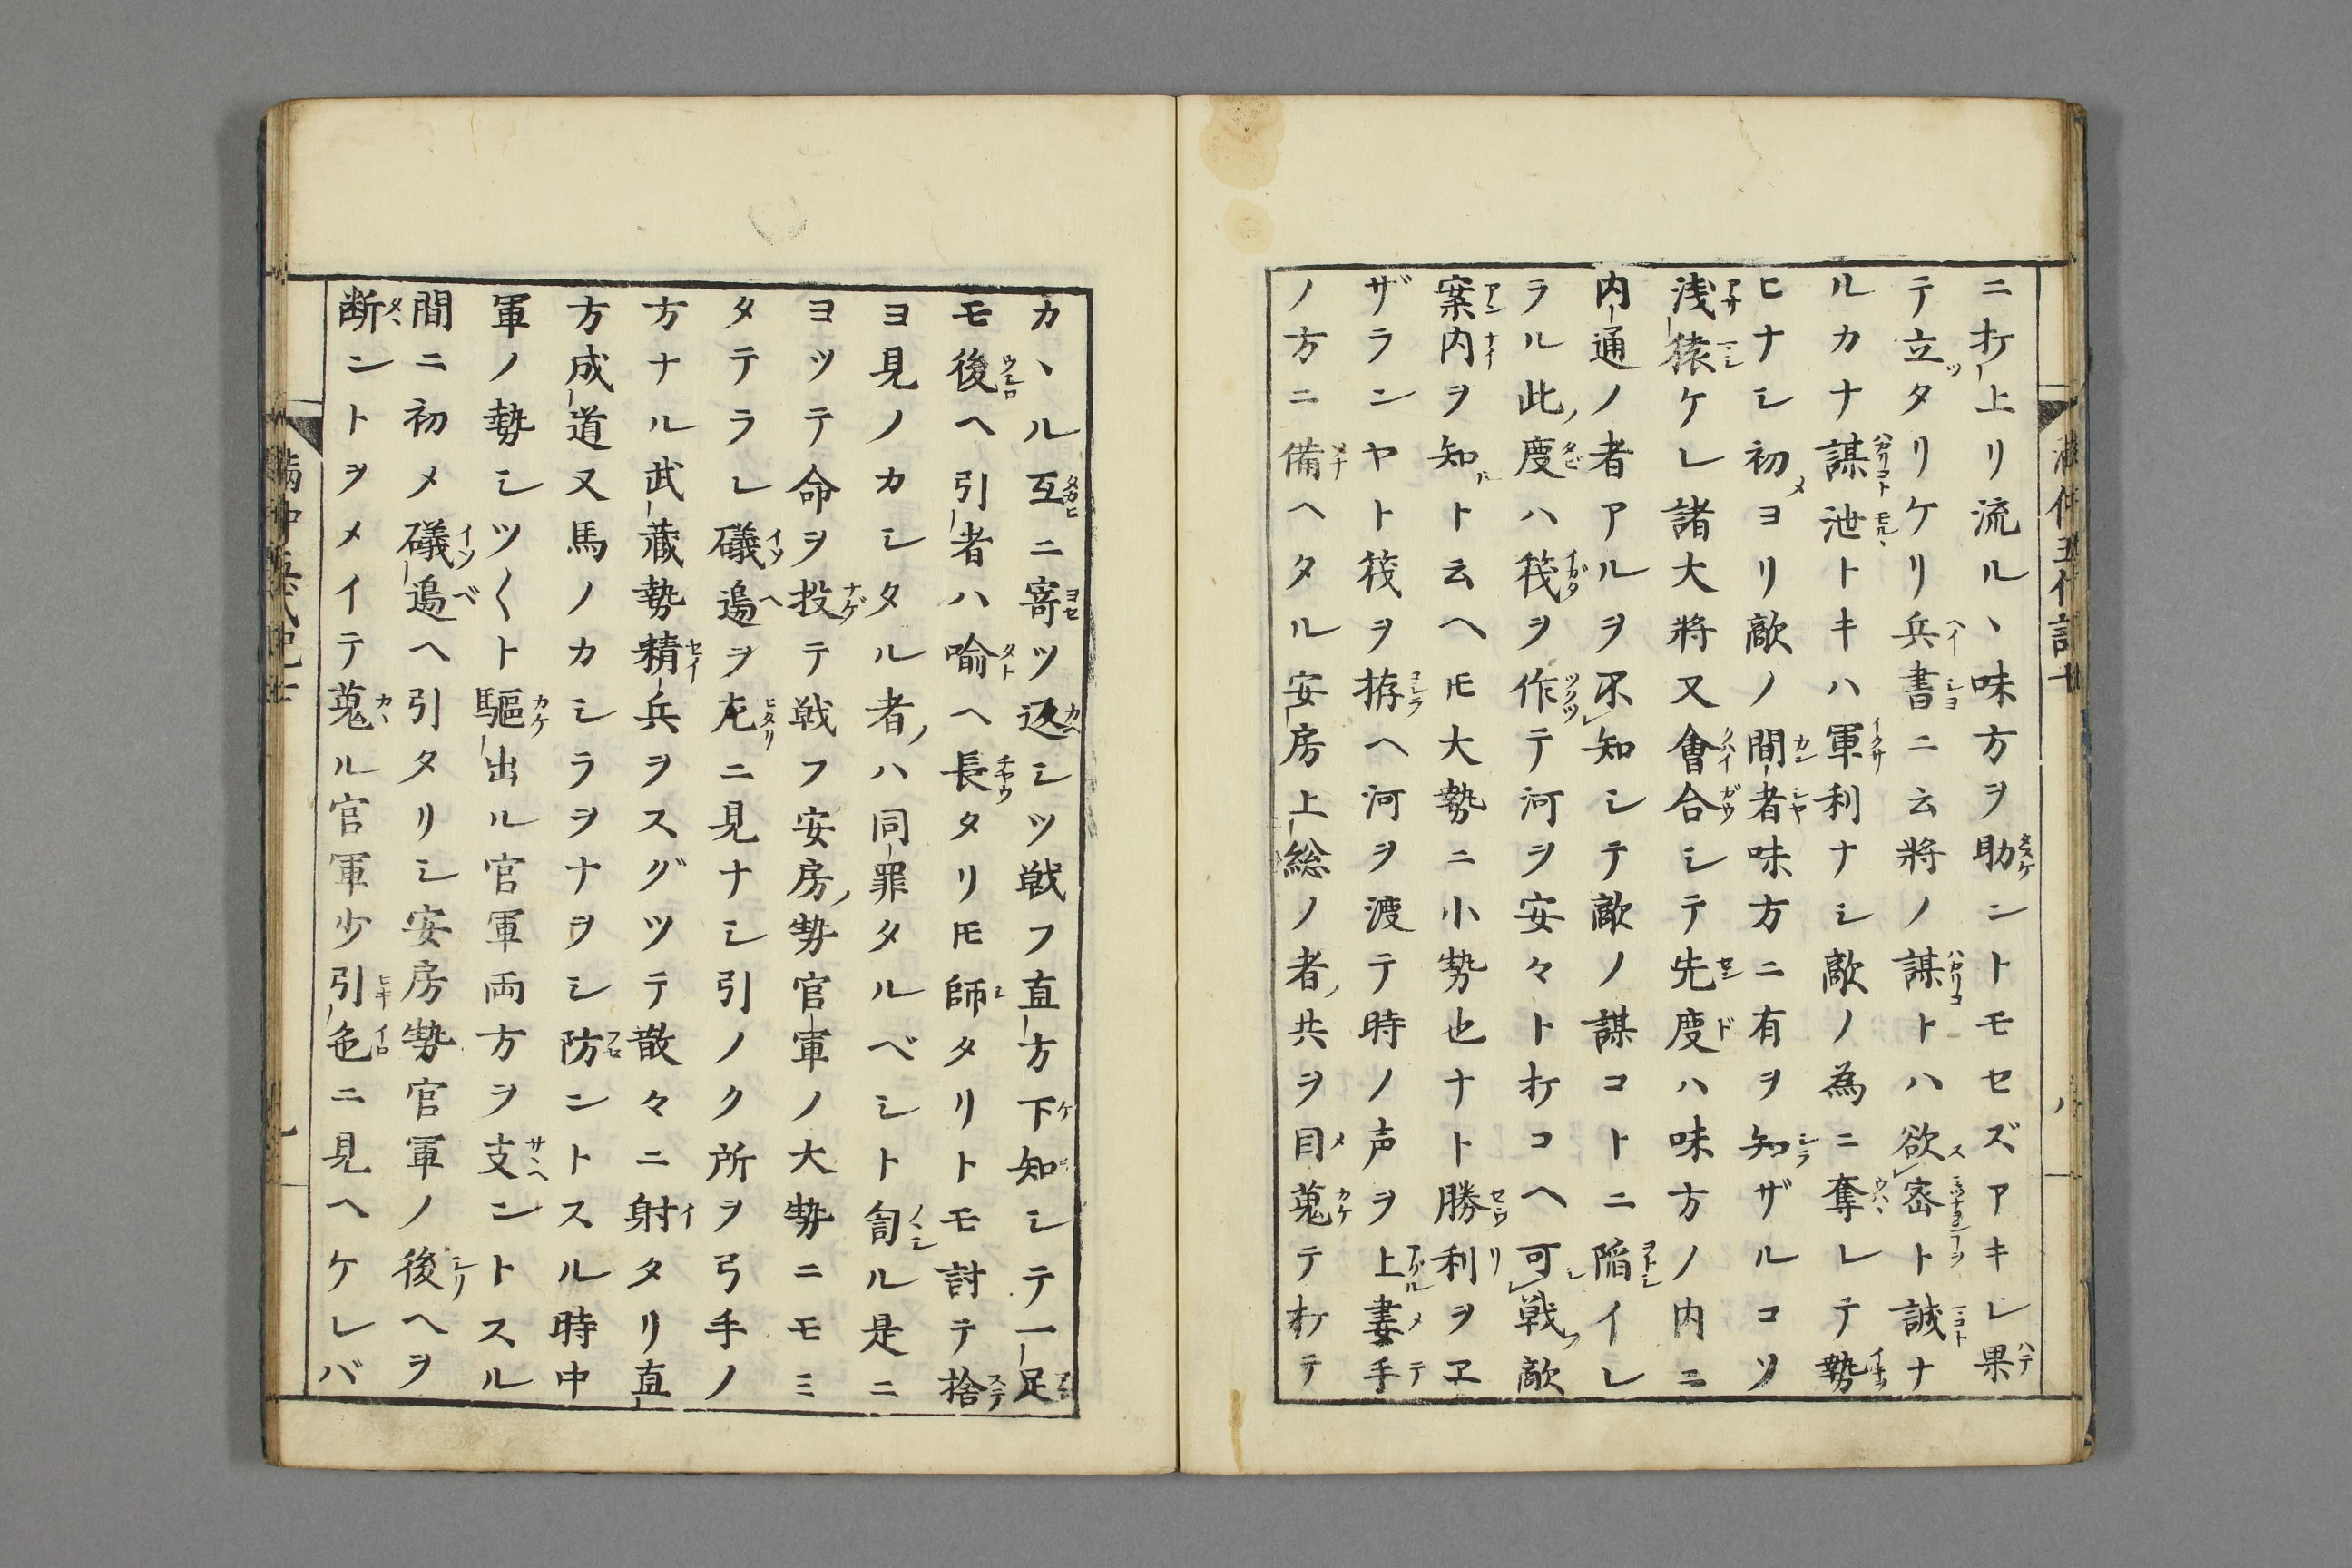 ニ打上リ流ル丶味方ヲ助ントモセズアキレ果
テ立タリケリ兵書ニ云將ノ謀トハ欲密ト誠ナ
ルカナ謀池トキハ軍利ナシ敵ノ為ニ奪レテ勢
ヒナシ初ヨリ敵ノ間者味方ニ有ヲ知ザルコソ
浅猿ケレ諸大將又會合シテ先度ハ味方ノ内ニ
内通ノ者アルヲ不知シテ敵ノ謀コトニ陥イレ
ラル此度ハ筏ヲ作テ河ヲ安々ト打コヘ可戦敵
案内ヲ知ト云ヘ𪜈大勢ニ小勢也ナト勝利ヲヱ
ザランヤト筏ヲ拵ヘ河ヲ渡テ時ノ声ヲ上妻手
ノ方ニ備ヘタル安房上総ノ者共ヲ目蒐テ打テ
カ丶ル互ニ寄ツ返シツ戦フ直方下知シテ一足
モ後ヘ引者ハ喻ヘ長タリ𪜈師タリトモ討テ捨
ヨ見ノカシタル者ハ同罪タルベシト訇ル是ニ
ヨツテ命ヲ投テ戦フ安房勢官軍ノ大勢ニモミ
タテラレ礒邉ヲ左ニ見ナシ引ノク所ヲ弓手ノ
方ナル武藏勢精兵ヲスグツテ散々ニ射タリ直
方成道又馬ノカシラヲナヲシ防ントスル時中
軍ノ勢シツ〱ト驅出ル官軍両方ヲ支ントスル
間ニ初メ礒邉ヘ引タリシ安房勢官軍ノ後ヘヲ
断ントヲメイテ蒐ル官軍少引色ニ見ヘケレバ